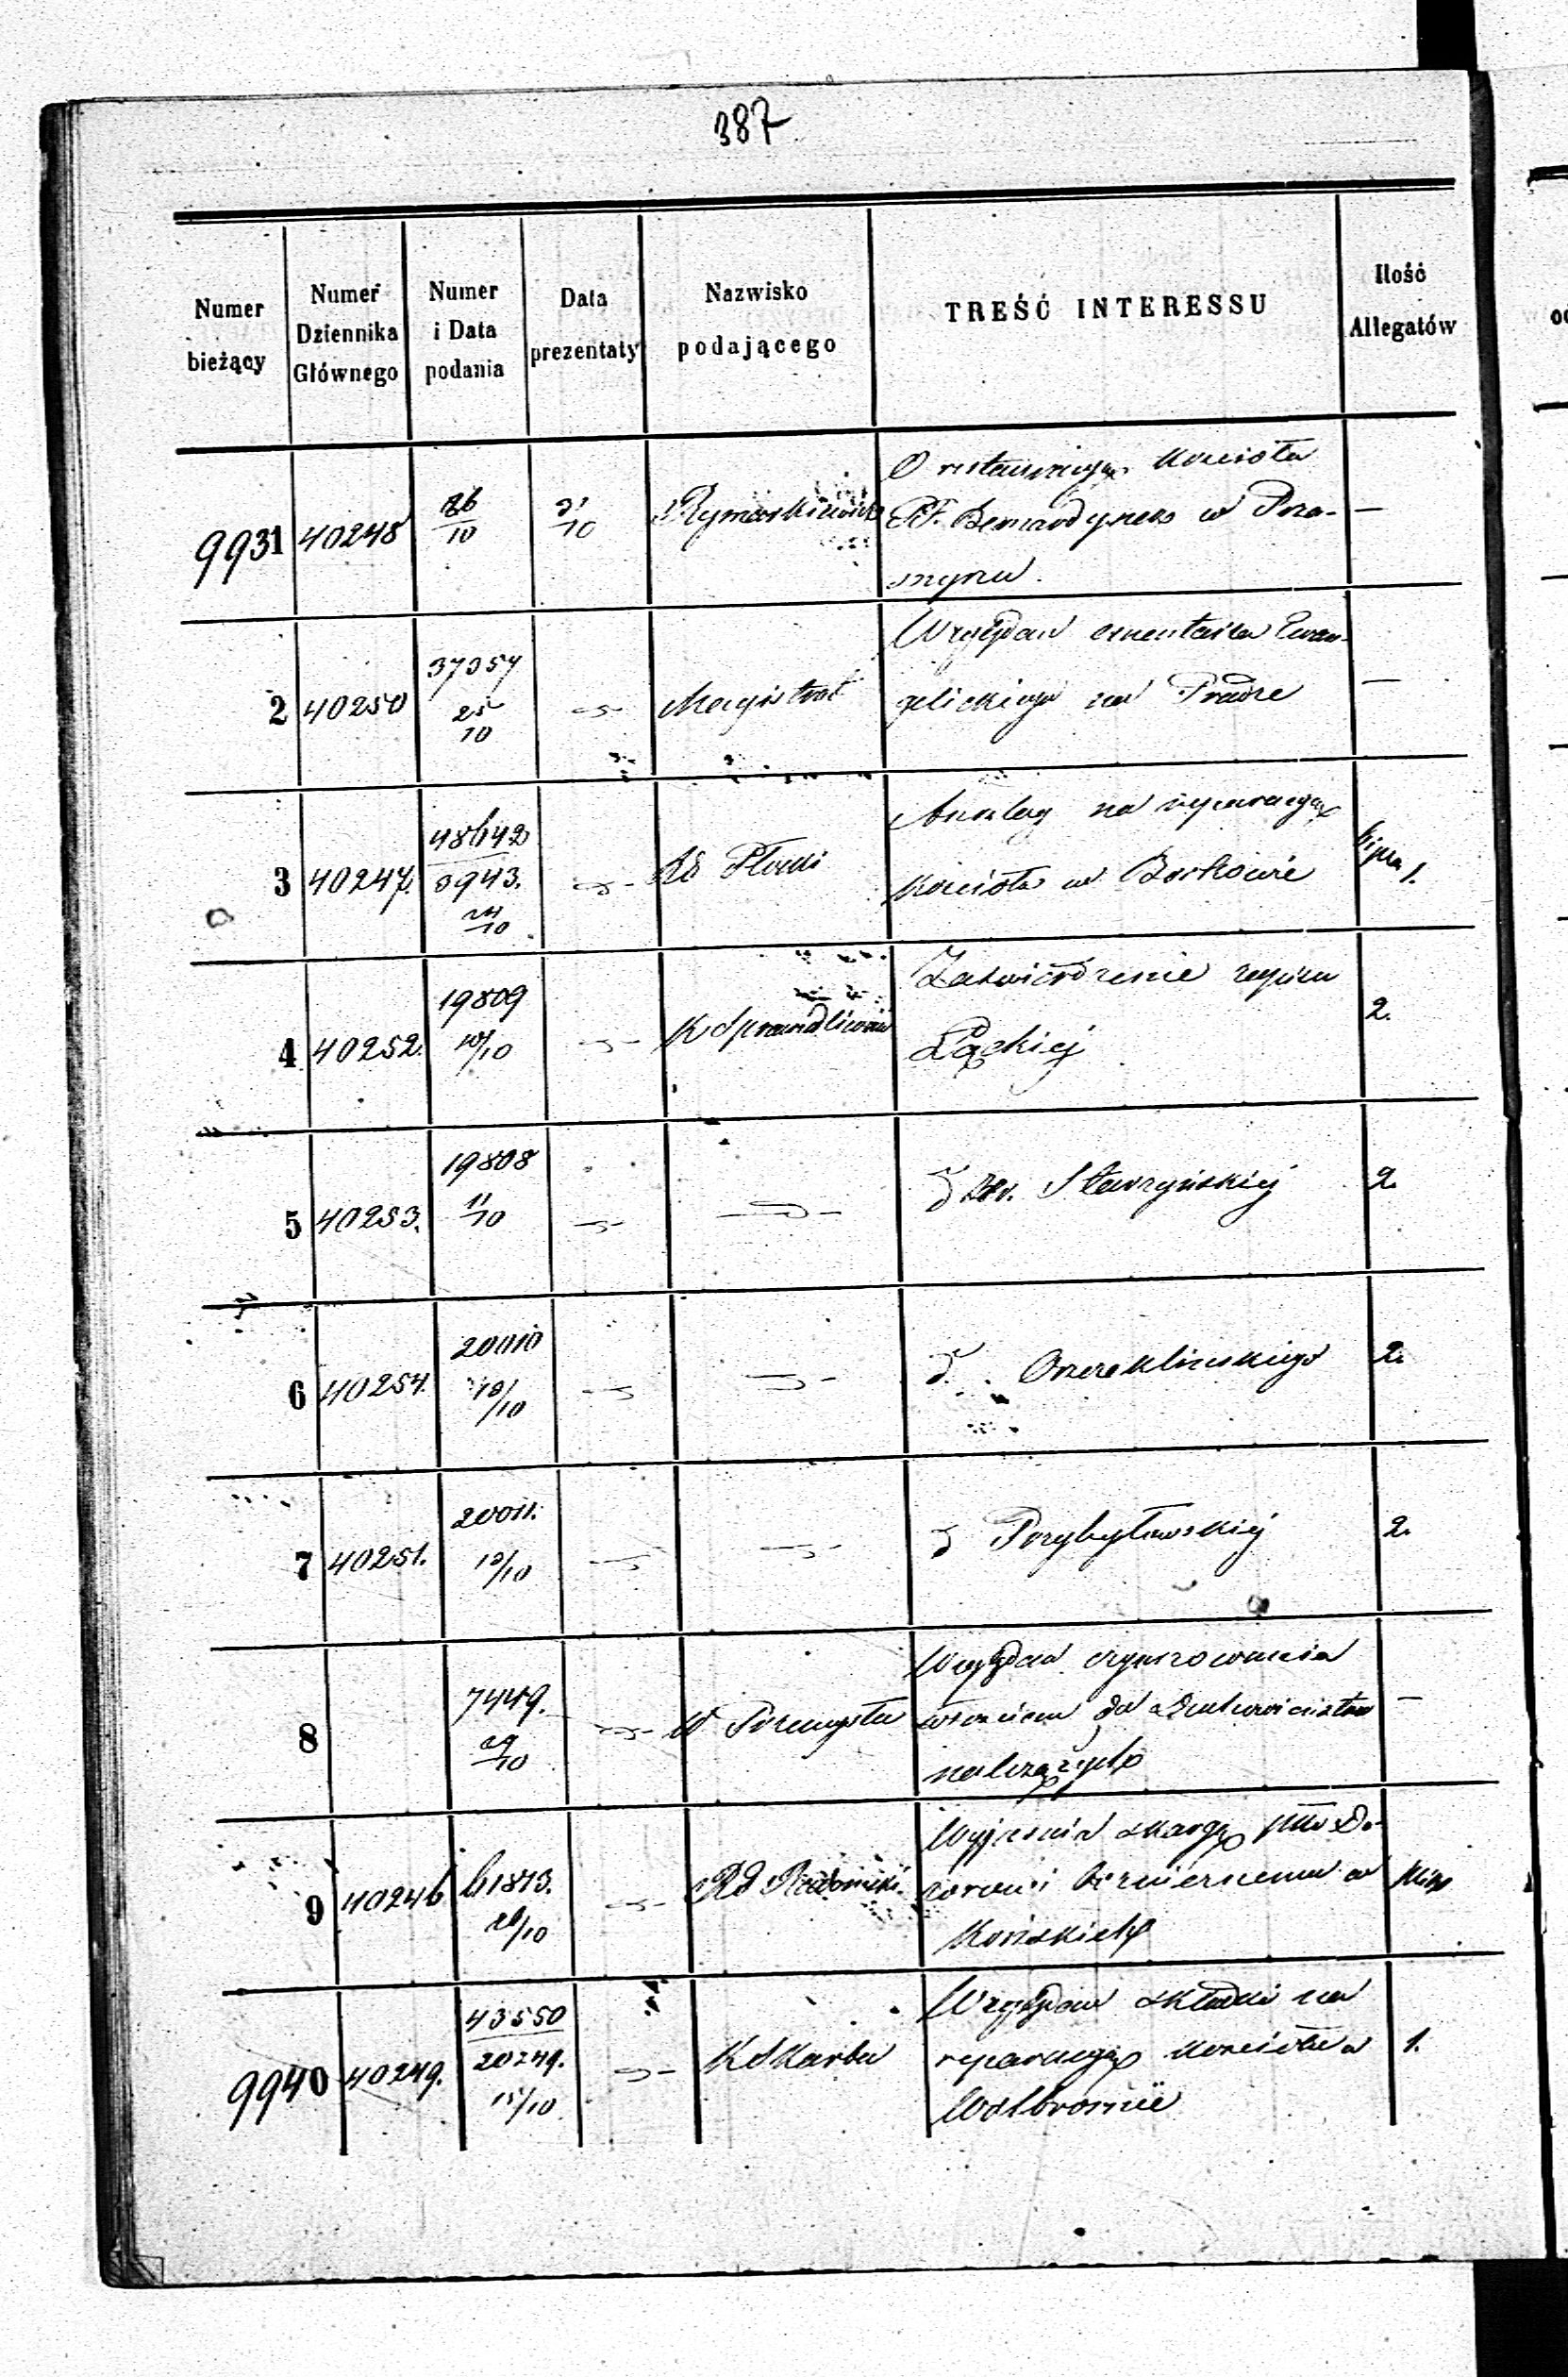 387
Numer bieżący
Numer Dziennika Głównego
Numer i Data podania
Data prezentaty
Nazwisko podającego
TREŚĆ INTERESSU
Ilość Allegatów
9931 40248 26/10 31/10 Rymarkiewicz O restauracyą Kościoła
PP. Bernardynek w Prza-
snyszu. —
2 40250 37354 25/10 Magistrat Względem cmentarza Ewan-
gelickiego na Pradze —
3 40247. 48642 3943. 24/10 Rd Płocki Anszlag na reparacyą
Kościoła w Borkowie 1.
4 40252. 19809 10/10 K Sprawiedliwości Zatwierdzenie zapisu
Łąckiej 2.
5 40253. 19808 11/10 Starzyńskiej 2.
6 40254. 20010 12/10 2.
7 40251. 20011. 12/10 Przybyławskiej 2.
8 7449. 29/10 Względem czynszowania
włościan do Duchowieństwa
należących —
9 40246 61813. 26/10 Rd Radomski Wyjaśnia skargę
w
Końskich
9940 40249. 43550 20249. 15/10 K Skarbu Względem składki na
reparacyą Kościoła w
Wolbromiu 1.